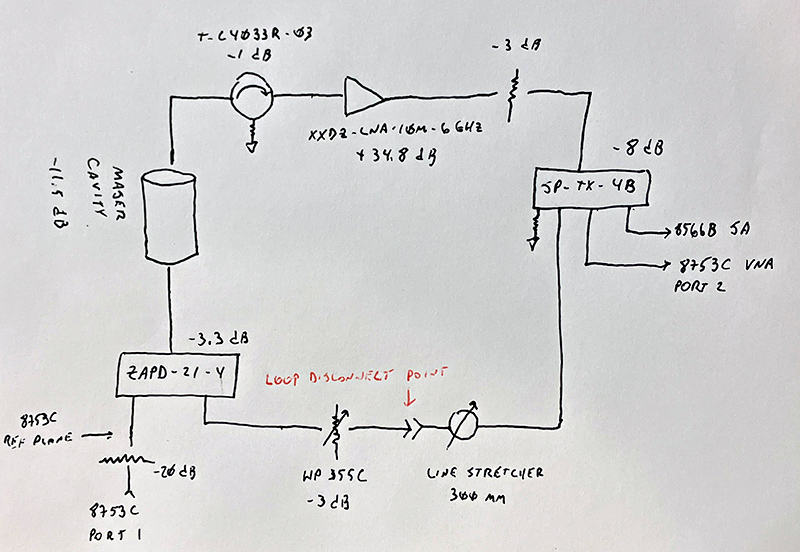 T-C4033R-03
-1 dB
-3 dB
XXDZ-LNA-10M-6GHZ
+34.8 dB
-8 dB
JP-TX-4B
8566B SA
8753C VNA
PORT 2
MASER
CAVITY
-11.5 dB
-3.3 dB
ZAPD-21-4
LOOP DISCONNECT POINT
8753C
REF PLANE
-20 dB
HP 355C
-3 dB
LINE STRETCHER
300 MM
8753C
PORT 1